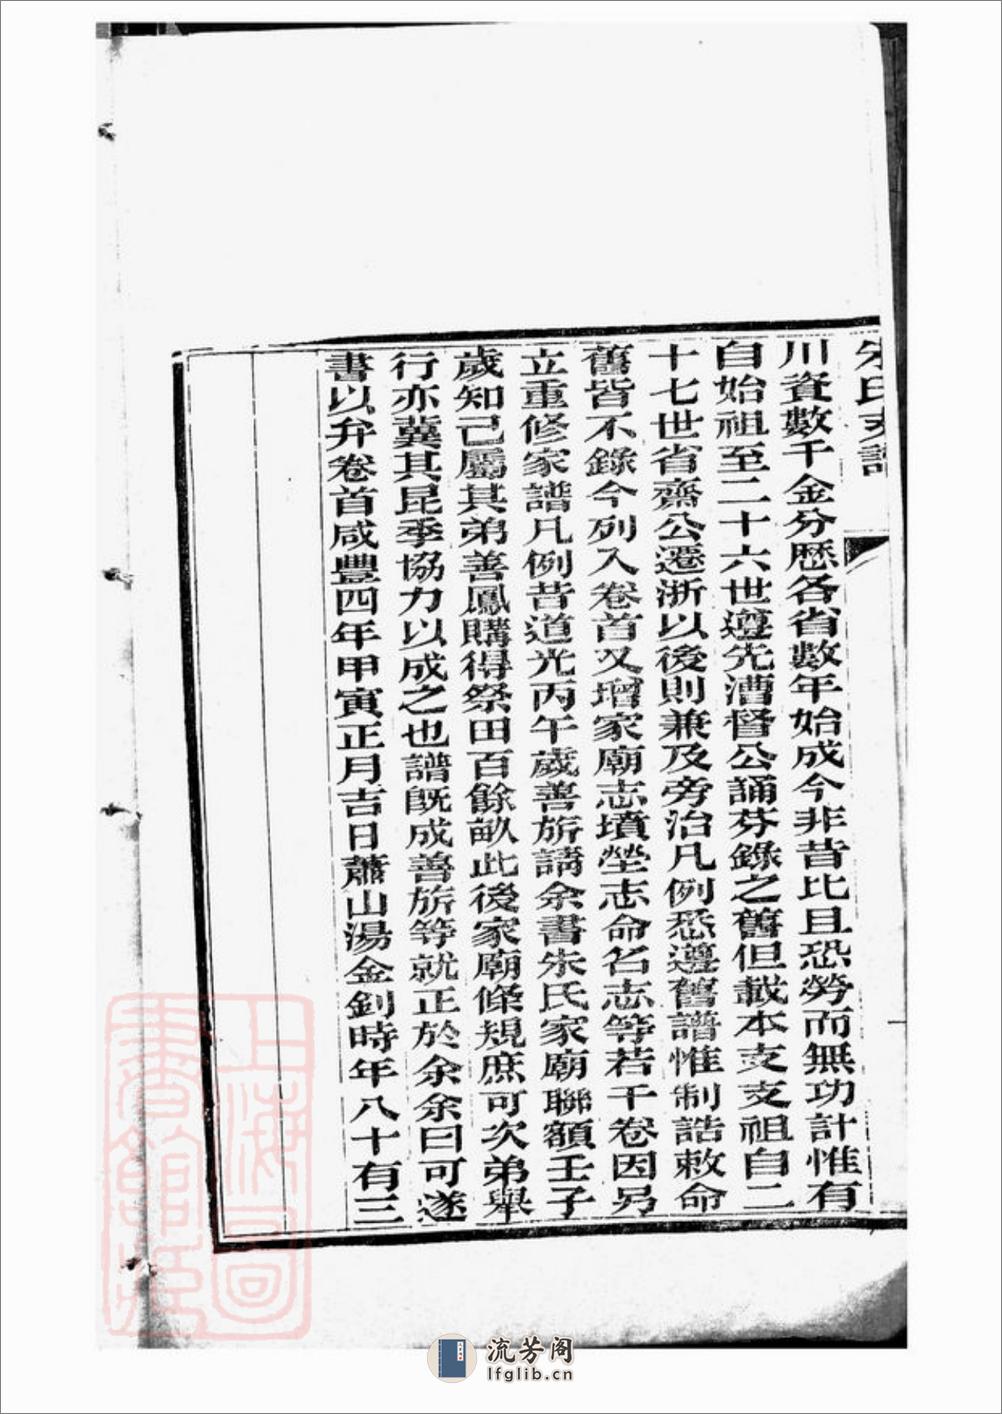 朱氏支譜
川資數千金分歷各省數年始成今非昔比且恐勞而無功計惟有
自始祖至二十六世遵先漕督公誦芬錄之舊但載本支支祖自二
十七世省齋公遷浙以後則兼及旁治凡例悉遵舊譜惟制誥敕命
舊皆不錄今列入卷首又增家廟志墳塋志命名志等若干卷因另
立重修家譜凡例昔道光丙午歲善旂請余書朱氏家廟聯額壬子
歲知己屬其弟善鳳購得祭田百餘畝此後家廟條規庶可次弟舉
行亦冀其昆季協力以成之也譜旣成善旂等就正於余余曰可遂
書以弁卷首咸豐四年甲寅正月吉日蕭山湯金釗時年八十有三
一
上海圖書館藏
流芳阁
lfglib.cn